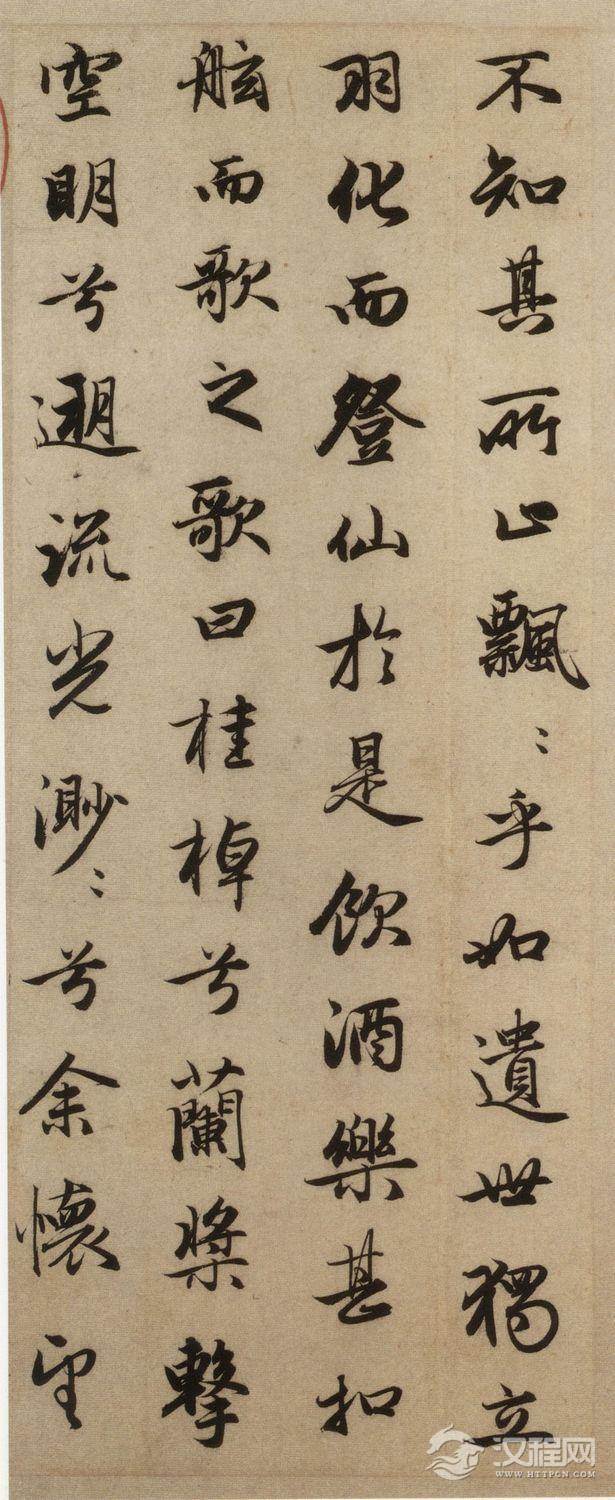 不知其所止飄〻乎如遺世獨立
羽化而登仙於是飲酒樂甚扣
舷而歌之歌曰桂棹兮蘭槳擊
空明兮遡流光渺〻兮余懷望
汉程网
WWW.HTTPCN.COM